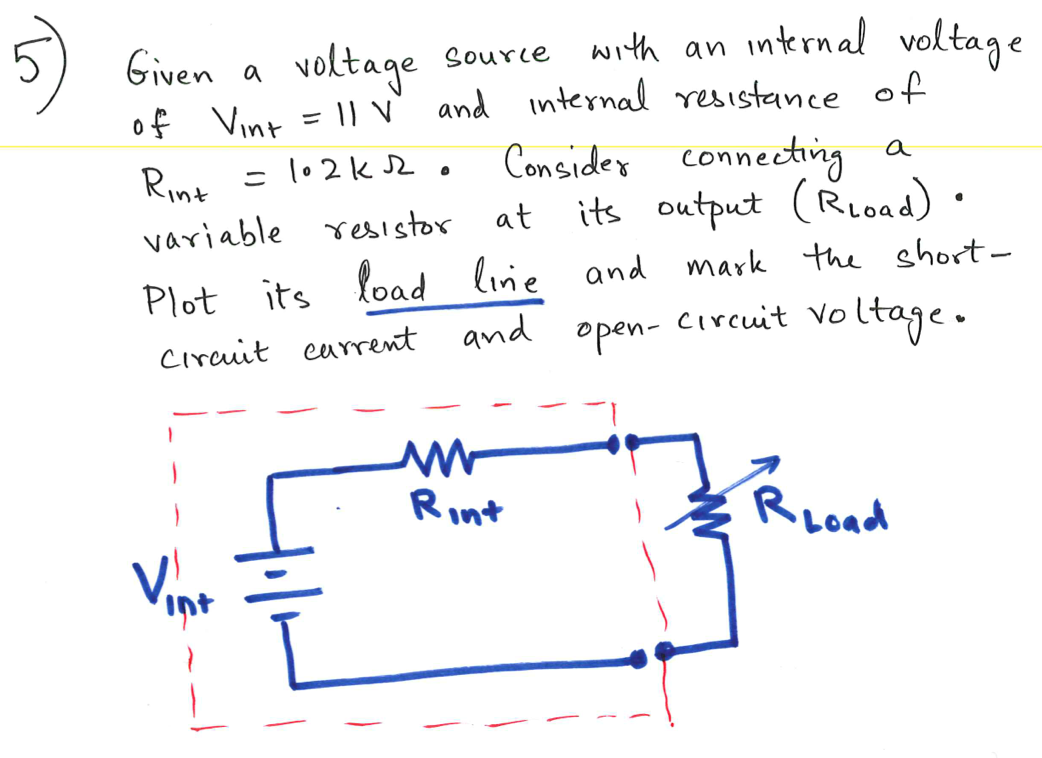 5)
Given a voltage source with an internal voltage
of Vint = 11 V and internal resistance of
Rint = 1.2k Ω. Consider connecting a
variable resistor at its output (RLoad).
Plot its load line and mark the short-
circuit current and open-circuit voltage.
Rint
RLoad
Vint